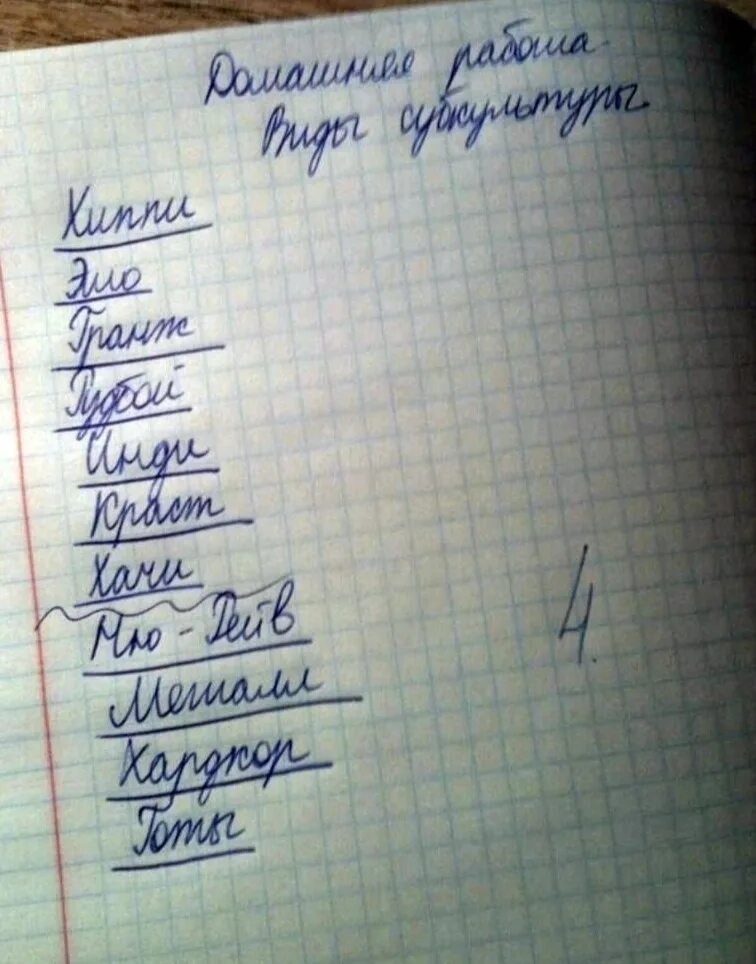 Домашняя работа.
Виды субкультуры
Хиппи
Эмо
Гранж
Рудбой
Инди
Краст
Хачи
Нью-Рейв
Металл
Хардкор
Готы
4.